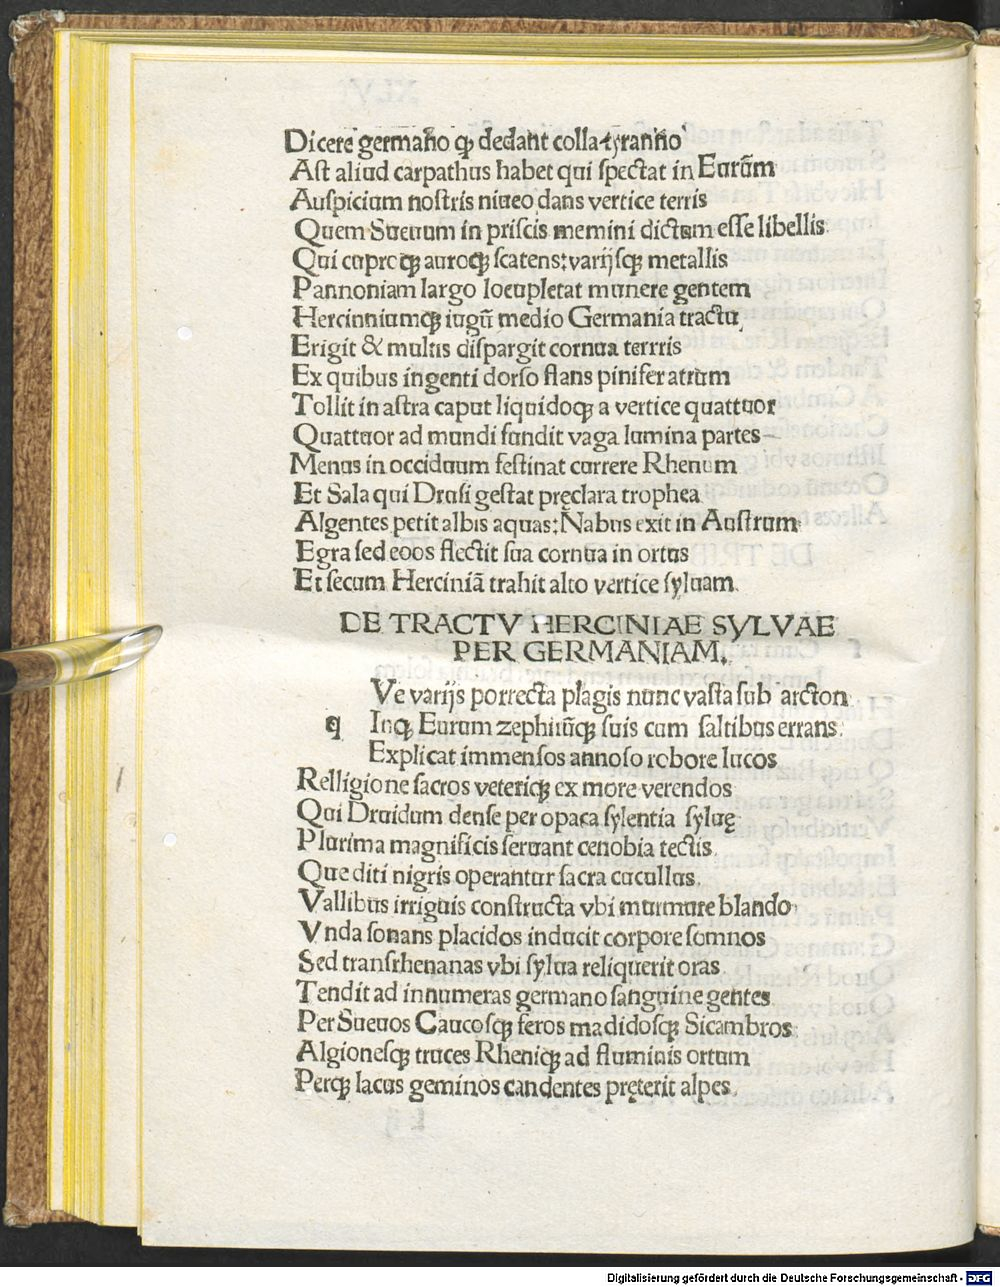 Dicere germāño ꝙ dedant colla tyranno
Aſt aliud carpathus habet qui ſpectat in Eurūm
Auſpicium noſtris niueo dans vertice terris
Quem Sueuum in priſcis memini dictum eſſe libellis:
Qui cuproqꝫ auroqꝫ ſcatens: varijſqꝫ metallis
Pannoniam largo locupletat munere gentem
Hercinniumqꝫ iugū medio Germania tractu
Erigit & multis diſpargit cornua terrris
Ex quibus ingenti dorſo ſtans pinifer atrum
Tollit in aſtra caput liquidoqꝫ a vertice quattuor
Quattuor ad mundi fundit vaga lumina partes
Menus in occiduum feſtinat currere Rhenum
Et Sala qui Druſi geſtat pręclara trophea
Algentes petit albis aquas: Nabus exit in Auſtrum
Egra ſed eoos flectit ſua cornua in ortus
Et ſecum Herciniā trahit alto vertice ſyluam.
DE TRACTV HERCINIAE SYLVAE
PER GERMANIAM.
Ve varijs porrecta plagis nunc vaſta ſub arcton
q Inqꝫ Eurum zephirūqꝫ ſuis cum ſaltibus errans:
Explicat immenſos annoſo robore lucos
Relligione ſacros veteriqꝫ ex more verendos
Qui Druidum denſe per opaca ſylentia ſyluę
Plurima magnificis ſeruant cenobia tectis.
Que diti nigris operantur ſacra cucullus.
Vallibus irriguis conſtructa vbi murmure blando
Vnda ſonans placidos inducit corpore ſomnos
Sed tranſrhenanas vbi ſylua reliquerit oras
Tendit ad innumeras germano ſanguine gentes
Per Sueuos Caucoſqꝫ feros madidoſqꝫ Sicambros
Algioneſqꝫ truces Rheniqꝫ ad fluminis ortum
Perqꝫ lacus geminos candentes pręterit alpes.
Digitalisierung gefördert durch die Deutsche Forschungsgemeinschaft - DFG